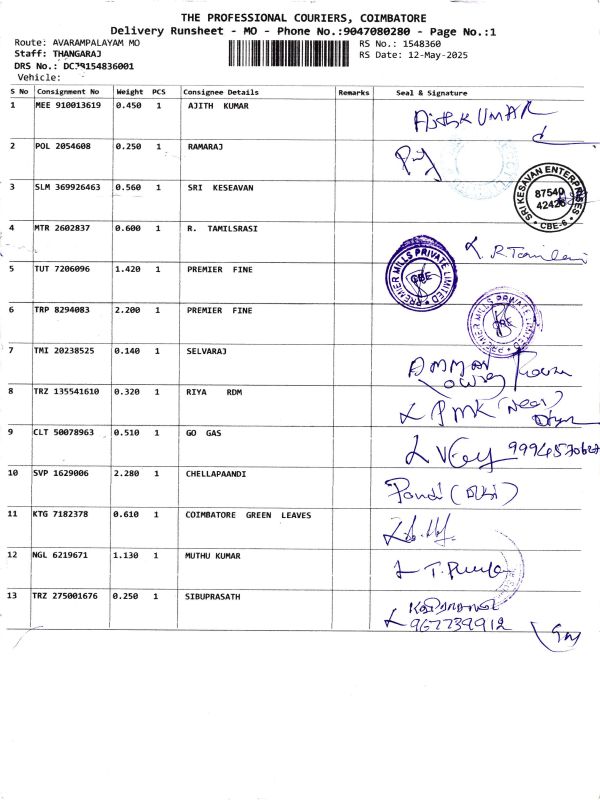 THE PROFESSIONAL COURIERS, COIMBATORE
Delivery Runsheet - MO - Phone No.:9047080280 - Page No.:1
Route: AVARAMPALAYAM MO
RS No.: 1548360
Staff: THANGARAJ
RS Date: 12-May-2025
DRS No.: DCJB154836001
Vehicle:
S No Consignment No Weight PCS Consignee Details Remarks Seal & Signature
1 MEE 910013619 0.450 1 AJITH KUMAR AjithKUMAR
2 POL 2054608 0.250 1 RAMARAJ
3 SLM 369926463 0.560 1 SRI KESEAVAN
SRI KESAVAN ENTERPRISES
87540
42426
CBE-6
4 MTR 2602837 0.600 1 R. TAMILSRASI
5 TUT 7206096 1.420 1 PREMIER FINE
PREMIER MILLS PRIVATE LIMITED
CBE
6 TRP 8294083 2.200 1 PREMIER FINE
PREMIER MILLS PRIVATE LIMITED
CBE
7 TMI 20238525 0.140 1 SELVARAJ AMMAN
8 TRZ 135541610 0.320 1 RIYA RDM
9 CLT 50078963 0.510 1 GO GAS
10 SVP 1629006 2.280 1 CHELLAPAANDI Pandi
11 KTG 7182378 0.610 1 COIMBATORE GREEN LEAVES
12 NGL 6219671 1.130 1 MUTHU KUMAR
13 TRZ 275001676 0.250 1 SIBUPRASATH